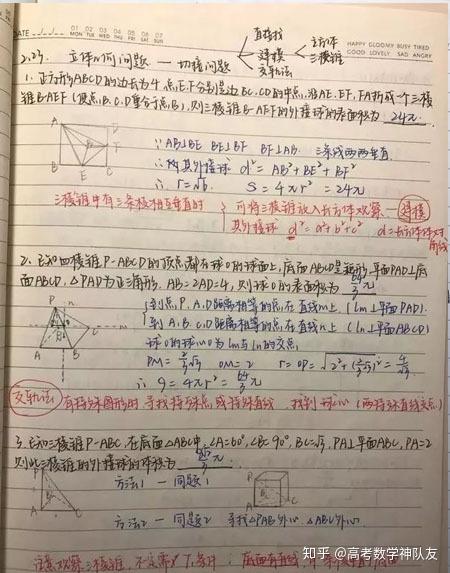 DATE
01 02 03 04 05 06 07
MON TUE WED THU FRI SAT SUN
HAPPY GLOOMY BUSY TIRED
GOOD LOVELY SAD ANGRY
直接找
2.23. 立体几何问题 — 切接问题 建模 长方体
三棱锥
交轨法
1. 正方形ABCD的边长为4,点E,F分别是边BC,CD的中点,沿AE,EF,FA折成一个三棱
锥B-AEF(顶点B,C,D重合于点B),则三棱锥B-AEF的外接球的表面积为 24π
A D
F
B E C
∵AB⊥BE BE⊥BF BF⊥AB. 三条线两两垂直
∴ 其外接球 d²=AB²+BE²+BF²
∴ r=√6 S=4πr²=24π
三棱锥中有三条棱相互垂直时 可将三棱锥放入长方体观察 — 建模
其外接球 d²=a²+b²+c² d=长方体体对
角线
2. 已知四棱锥P-ABCD的顶点都在球O的球面上,底面ABCD是矩形,平面PAD⊥底
面ABCD,△PAD为正三角形,AB=2AD=4,则球O的表面积为 64/3 π
P
A B C
到点P、A、D距离相等的点,在直线m上 (m⊥平面PAD)
到A、B、C、D距离相等的点在直线n上 (n⊥平面ABCD)
球O的球心O为m与n的交点
PM=2/3√3 OM=2 r=OP=√(2²+(2/3√3)²)=4/√3
∴ S=4πr²=64/3 π
交轨法 有特殊图形时 寻找特殊点或特殊直线 找到球心 (两特殊直线交点)
3. 已知三棱锥P-ABC,在底面△ABC中,∠A=60°,∠B=90°,BC=√3,PA⊥平面ABC,PA=2
则此三棱锥的外接球的体积为
方法1 — 同题1
方法2 — 同题2 寻找△PAB外心 △ABC外心
知乎 @高考数学神队友